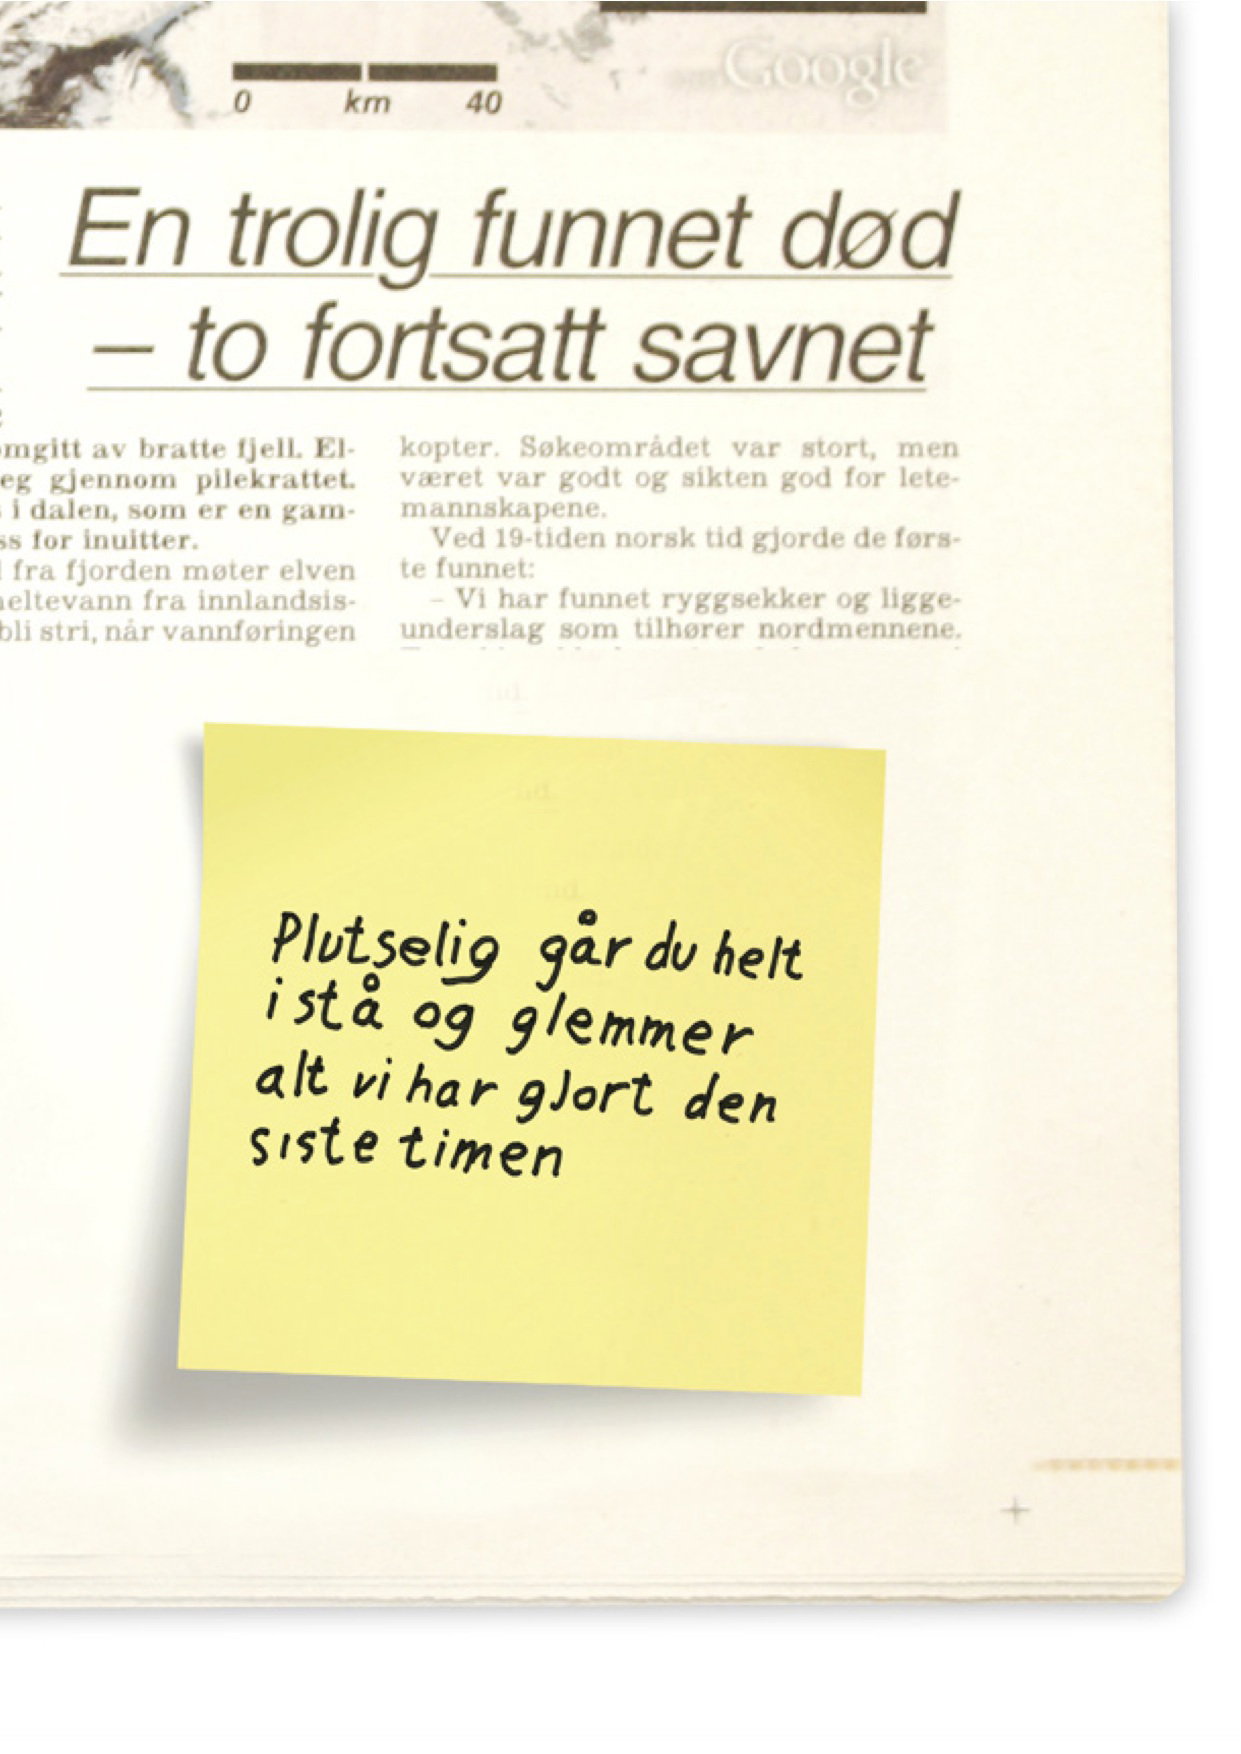 0 km 40
Google
En trolig funnet død
– to fortsatt savnet
omgitt av bratte fjell. El-
eg gjennom pilekrattet.
i dalen, som er en gam-
ss for inuitter.
fra fjorden møter elven
neltevann fra innlandsis-
bli stri, når vannføringen
kopter. Søkeområdet var stort, men
været var godt og sikten god for lete-
mannskapene.
Ved 19-tiden norsk tid gjorde de førs-
te funnet:
– Vi har funnet ryggsekker og ligge-
underslag som tilhører nordmennene.
Plutselig går du helt
i stå og glemmer
alt vi har gjort den
siste timen